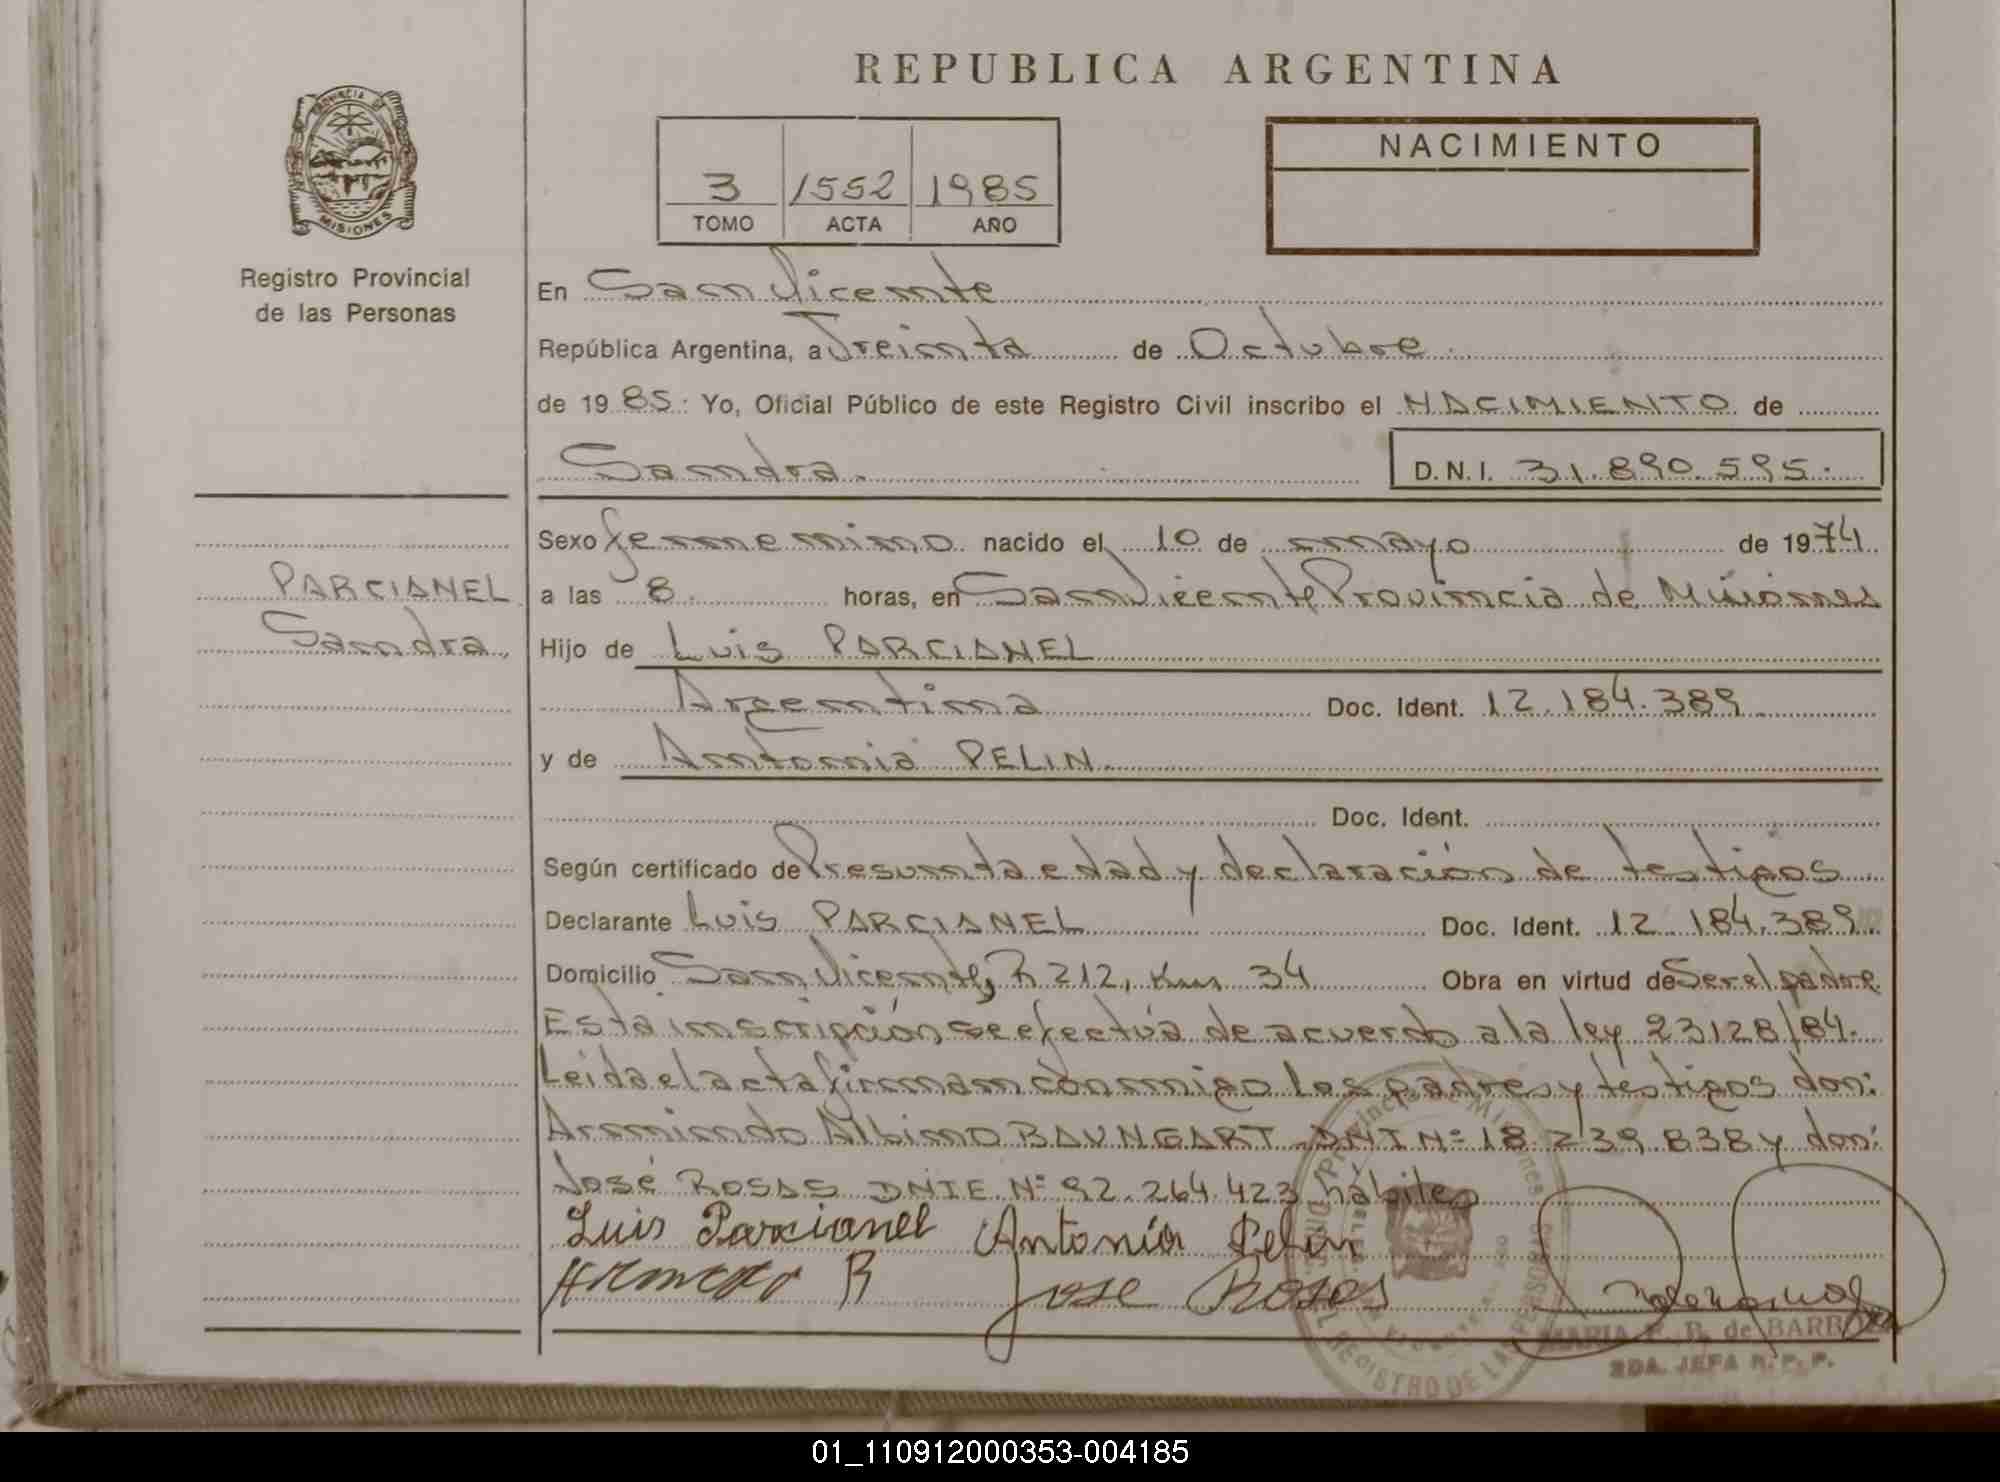 REPUBLICA ARGENTINA
PROVINCIA DE
MISIONES
Registro Provincial
de las Personas
3 1552 1985
TOMO ACTA AÑO
NACIMIENTO
En San Vicente
República Argentina, a Treinta de Octubre
de 19 85: Yo, Oficial Público de este Registro Civil inscribo el NACIMIENTO de
Sandra. D.N.I. 31.890.595.
Sexo femenino nacido el 10 de mayo de 1974
PARCIANEL a las 8 horas, en San Vicente Provincia de Misiones
Sandra. Hijo de Luis PARCIANEL
Argentina Doc. Ident. 12.184.389
y de Antonia PELIN.
Doc. Ident.
Según certificado de Presunta edad y declaración de testigos
Declarante Luis PARCIANEL Doc. Ident. 12.184.389.
Domicilio San Vicente, R 212, Km 34 Obra en virtud de Ser el padre
Esta inscripción se efectúa de acuerdo a la ley 23128/84.
Leida el acta firman conmigo los padres y testigos don:
Armindo Albino BAUNGART DNI Nº 18.239.838 y don:
José ROSAS DNIE Nº 92.264.423 hábiles
Luis Parcianel Antonia Pelin
B Jose Rosas
MARIA E. B. de BARBOZA
2DA. JEFA R.P.P.
REGISTRO DE LAS PERSONAS
01_110912000353-004185